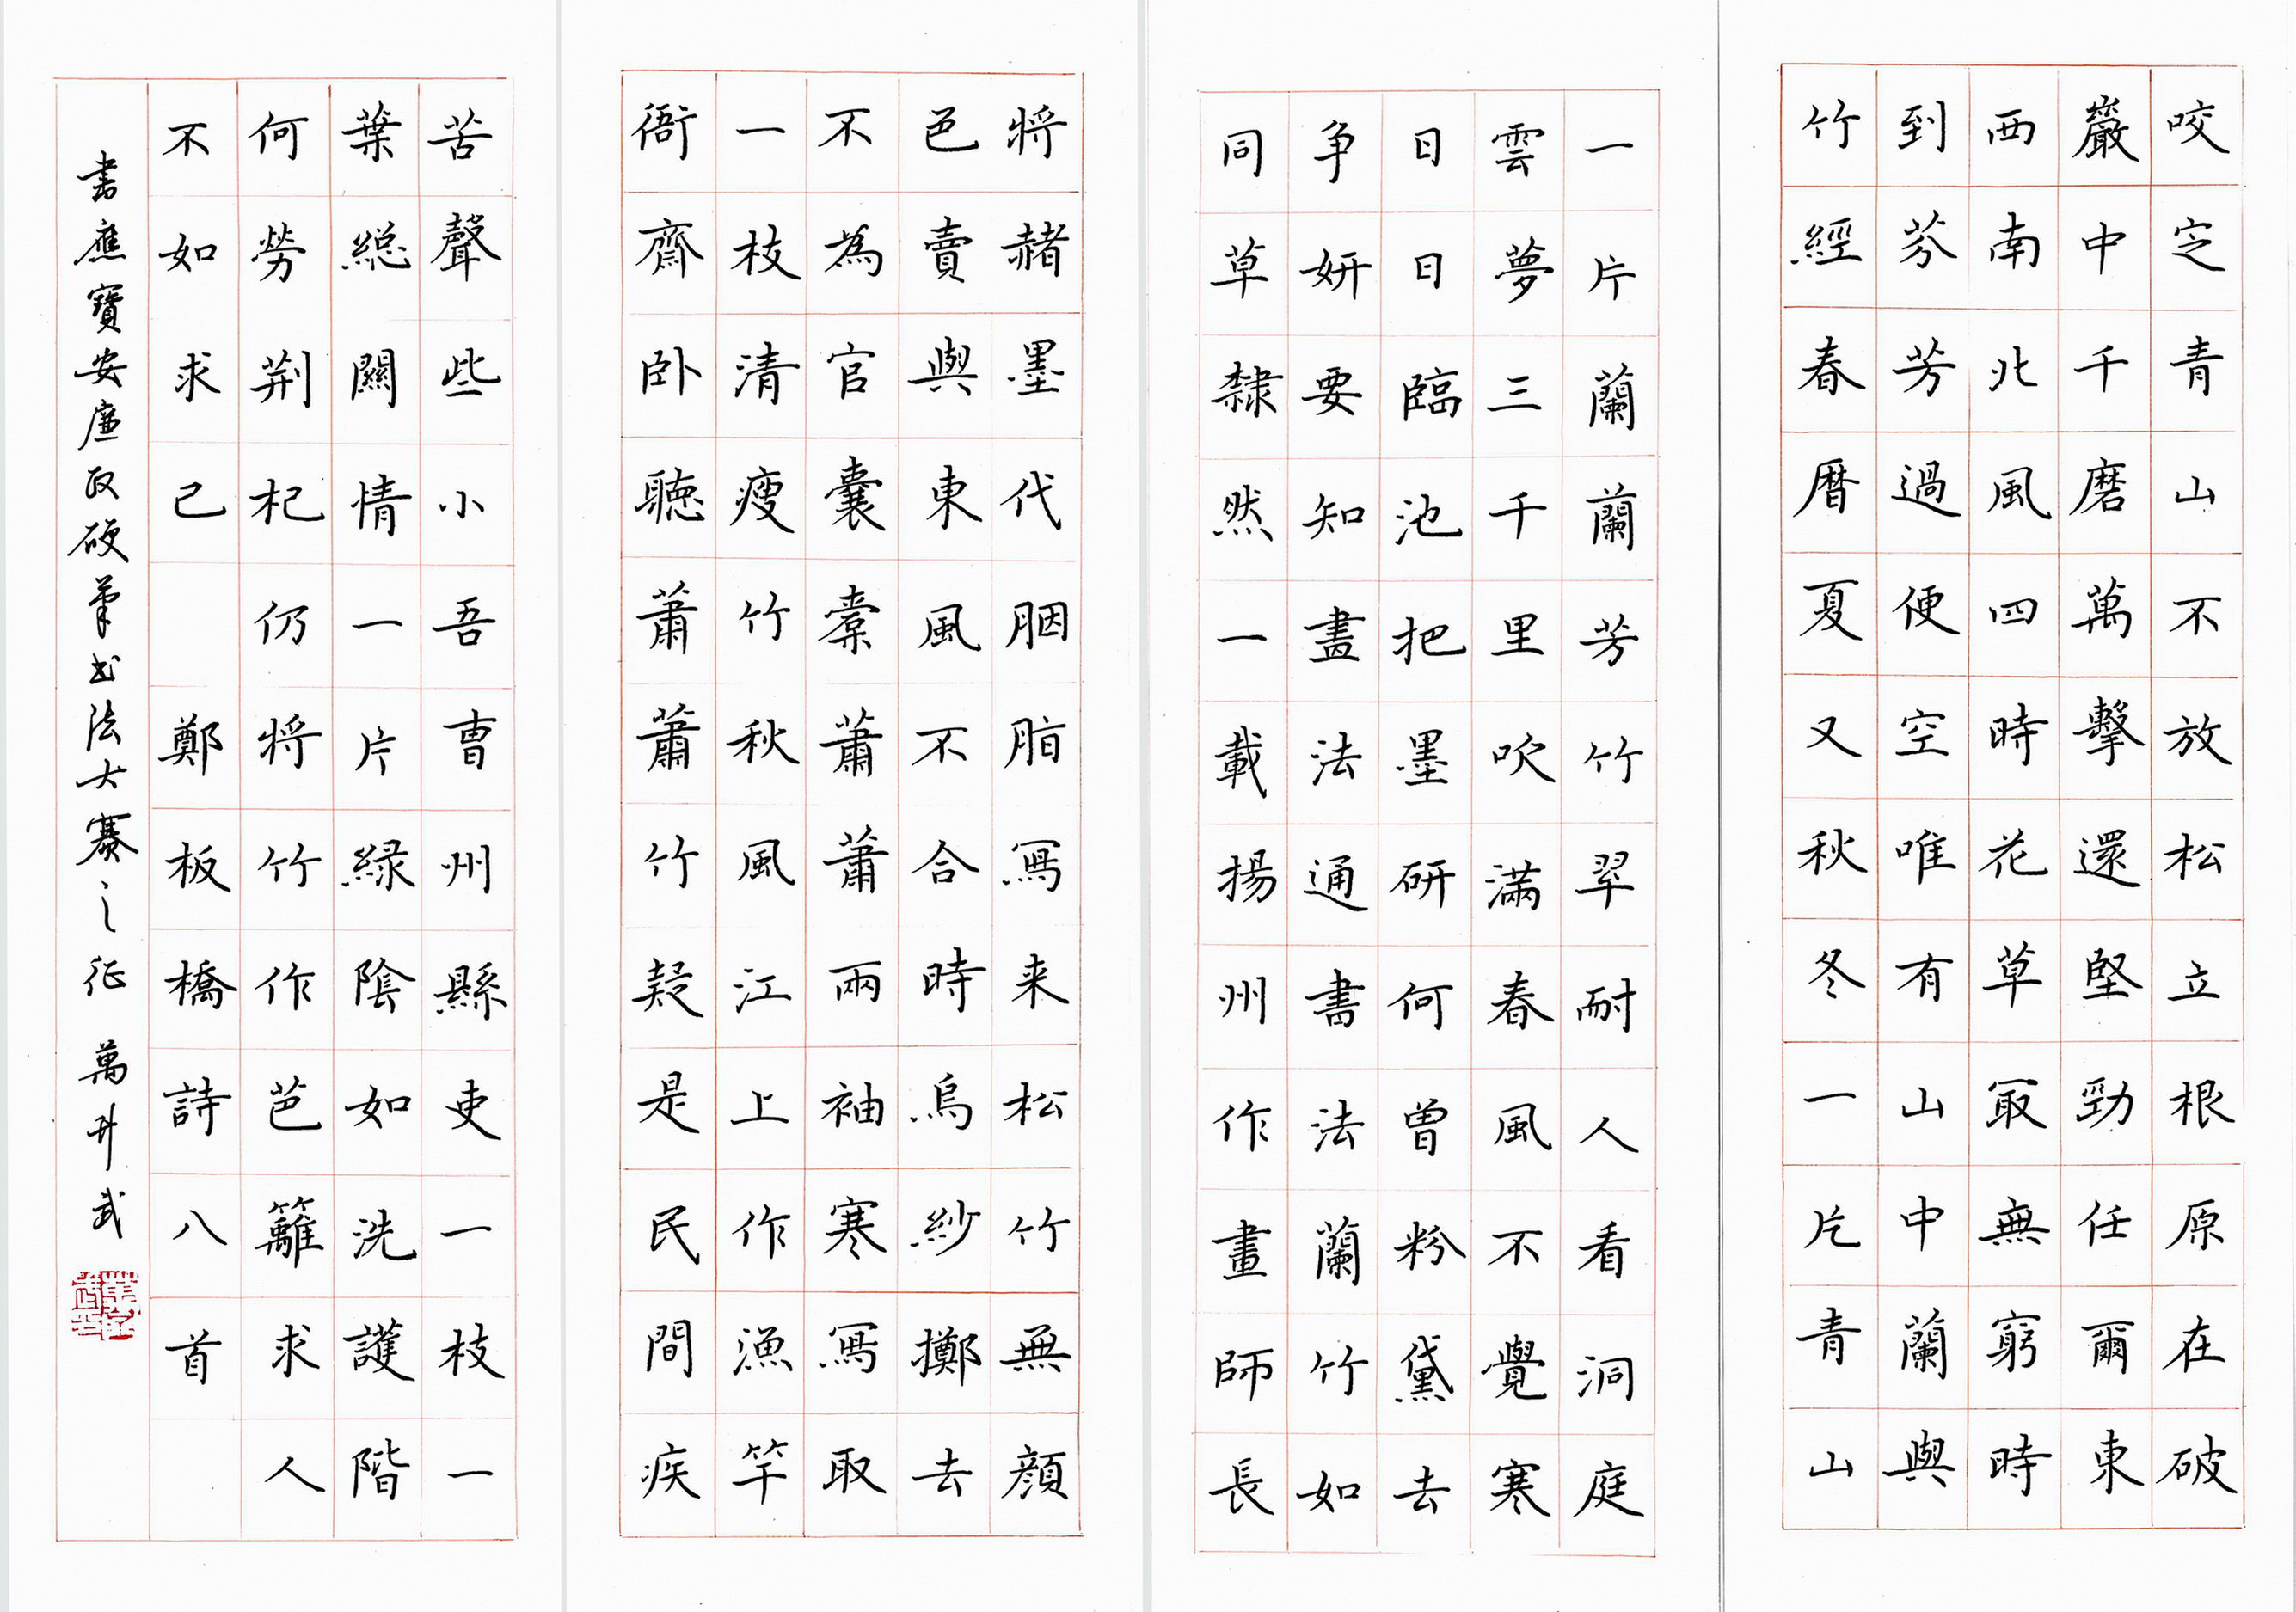 咬定青山不放松立根原在破
巖中千磨萬擊還堅勁任爾東
西南北風四時花草最無窮時
到芬芳過便空唯有山中蘭與
竹經春曆夏又秋冬一片青山
一片蘭蘭芳竹翠耐人看洞庭
雲夢三千里吹滿春風不覺寒
日日臨池把墨研何曾粉黛去
争妍要知畫法通書法蘭竹如
同草隸然一載揚州作畫師長
將赭墨代胭脂寫来松竹無顔
色賣與東風不合時烏紗擲去
不為官囊橐蕭蕭兩袖寒寫取
一枝清瘦竹秋風江上作漁竿
衙齋卧聽蕭蕭竹疑是民間疾
苦聲些小吾曹州縣吏一枝一
葉總關情一片緑陰如洗護階
何勞荆杞仍將竹作芭籬求人
不如求己 鄭板橋詩八首
書應寶安廉政硬筆书法大赛之征 萬升武